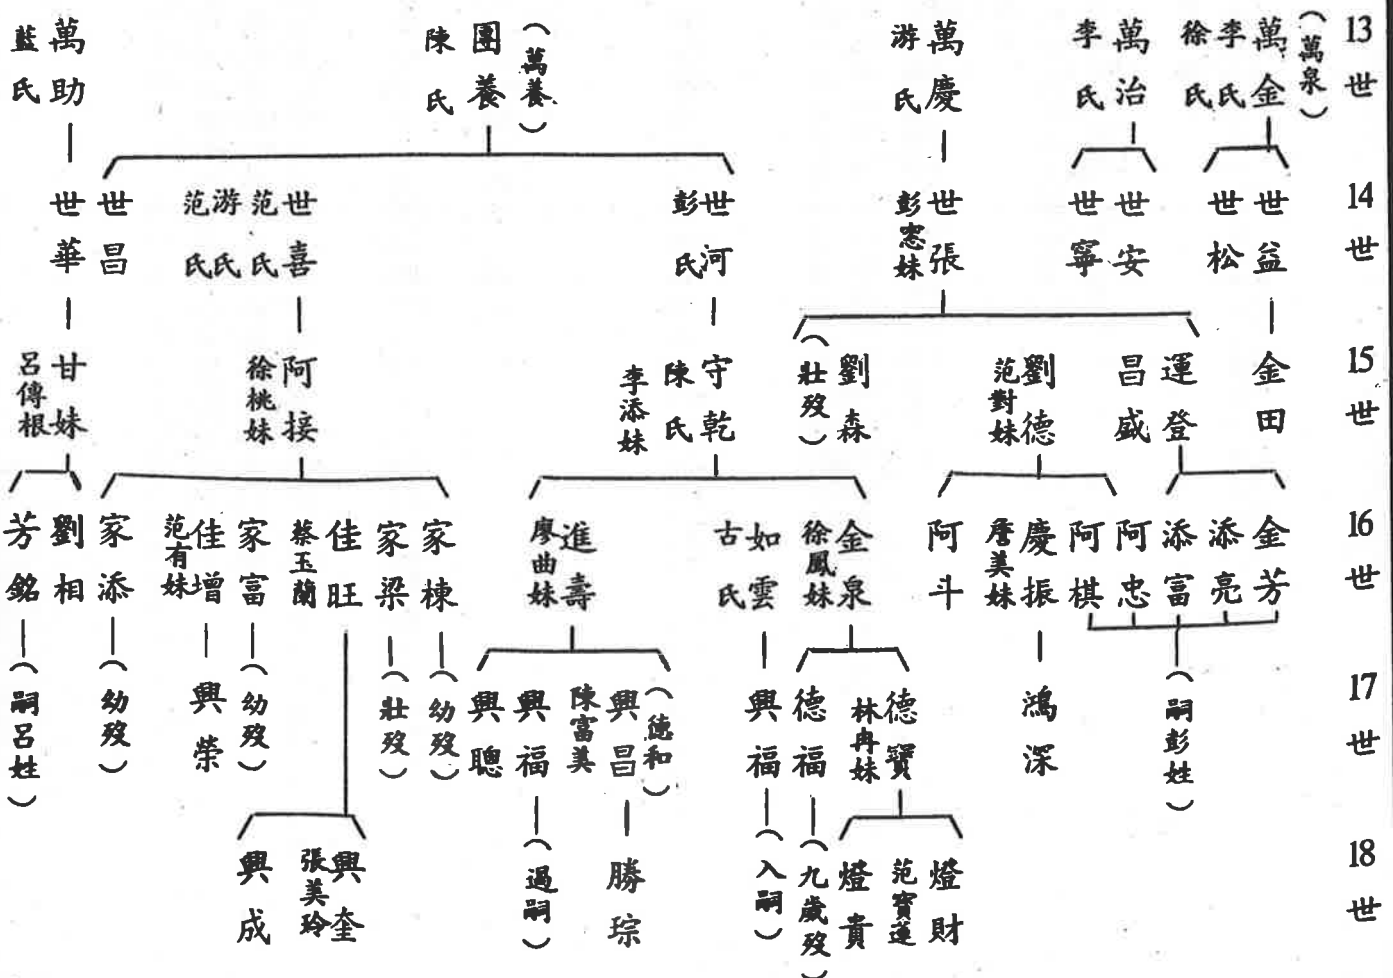 13世
（萬泉）
萬金
李氏
徐氏
萬治
李氏
萬慶
游氏
（萬養）
團養
陳氏
萬助
藍氏
14世
世益
世松
世安
世寧
世張
彭窓妹
世河
彭氏
世喜
范氏
游氏
范氏
世昌
世華
15世
金田
運登
昌盛
劉德
范對妹
劉森
（壯歿）
守乾
陳氏
李添妹
阿接
徐桃妹
甘妹
呂傳根
16世
金芳
添亮
添富
阿忠
阿棋
慶振
詹美妹
阿斗
金泉
徐鳳妹
如雲
古氏
進壽
廖曲妹
家棟
家梁
佳旺
蔡玉蘭
家富
佳增
范有妹
家添
劉相
芳銘
17世
（嗣彭姓）
鴻深
德寶
林冉妹
德福
興福
（德和）
興昌
陳富美
興福
興聰
（幼歿）
（壯歿）
（幼歿）
興榮
（幼歿）
（嗣呂姓）
18世
燈財
范寶蓮
燈貴
（九歲歿）
（入嗣）
勝琮
（過嗣）
興奎
張美玲
興成